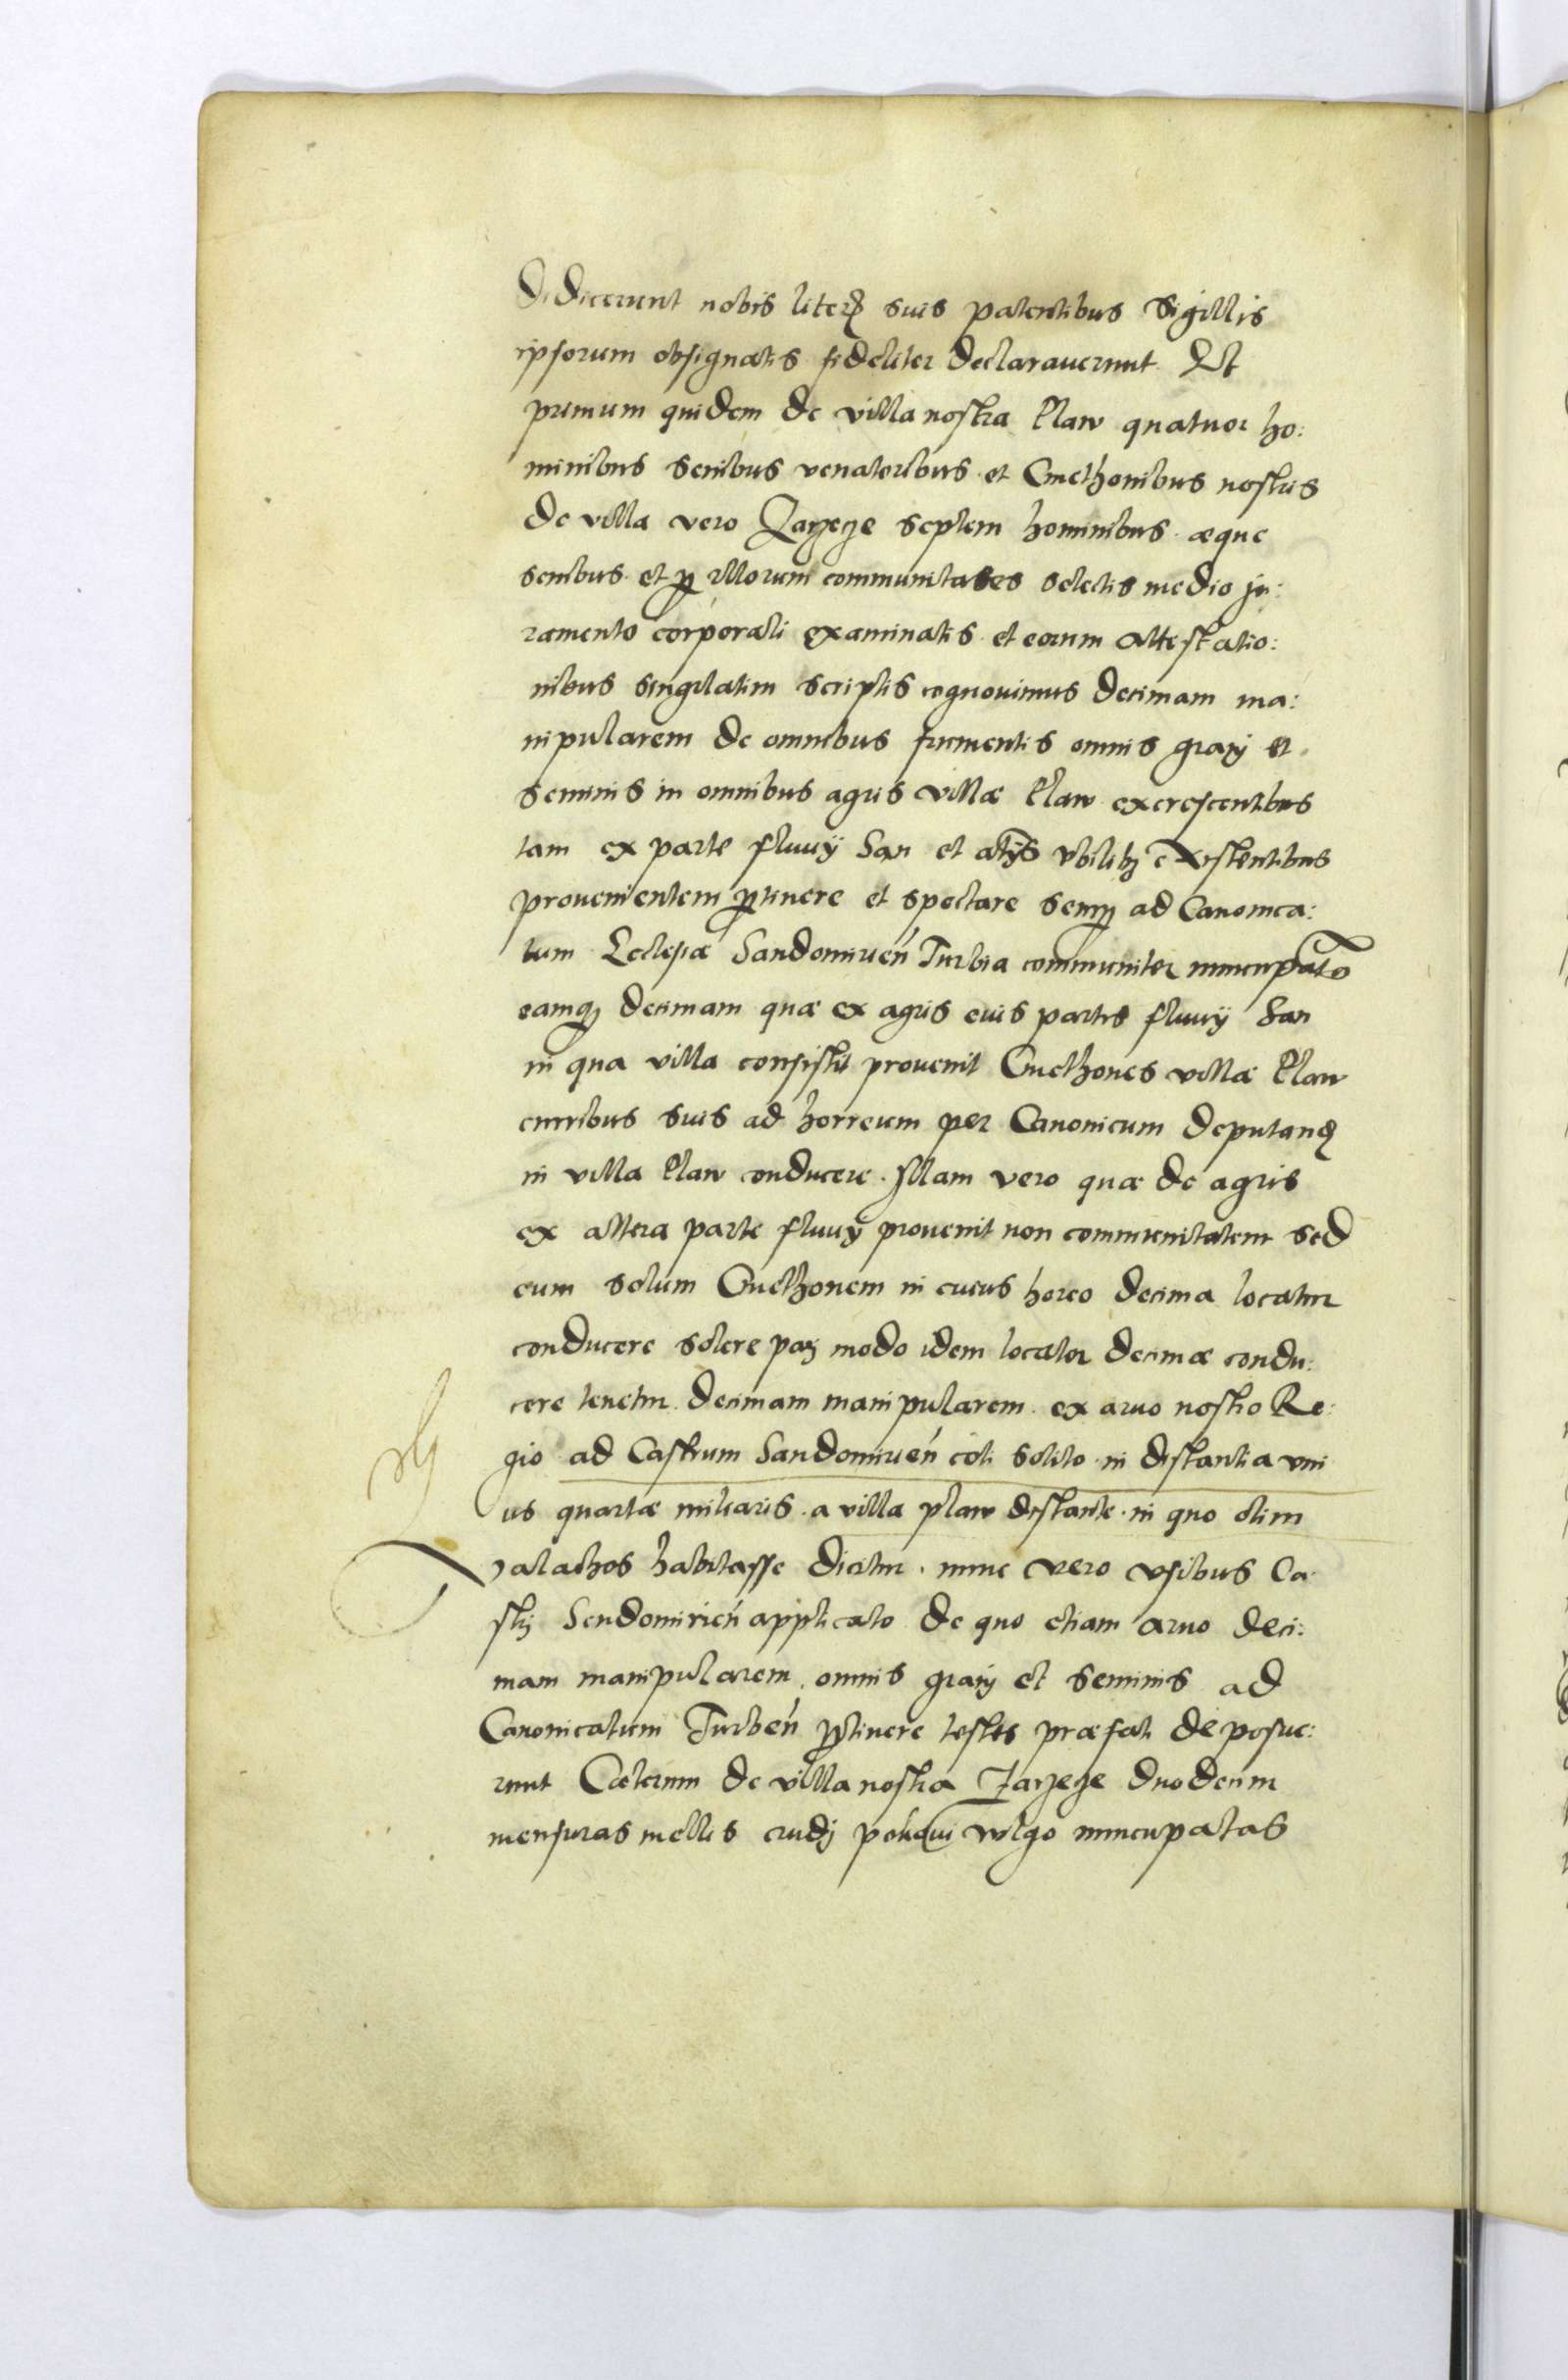 Didicerunt nobis literꝭ suis patentibus sigillis
ipsorum obsignatis fideliter declaraverunt Et
primum quidem de villa nostra Plaw quatuor ho:
minibus senibus venatoribus et Cmethonibus nostris
de villa vero Zarzecze septem hominibus æque
senibus et ꝑ illorum communitates selectis medio ju:
ramento corporali examinatis et eorum attestatio:
nibus singulatim scriptis cognovimus decimam ma:
nipularem de omnibus frumentis omnis grani et
seminis in omnibus agris villæ Plaw excrescentibus
tam ex parte fluvij San et alijs ubilibȝ existentibus
provenientem ꝑtinere et spectare semꝑ ad Canonica:
tum Ecclesiæ Sandomirień Turbia communiter nuncupato
eamqȝ decimam quæ ex agris eius partis fluvij San
in qua villa consistit provenit Cmethones villæ Plaw
curribus suis ad horreum per Canonicum deputandꝭ
in villa Plaw conducere. Illam vero quæ de agris
ex altera parte fluvij provenit non communitatem sed
eum solum Cmethonem in cuius horeo decima locatur
conducere solere pari modo idem locator decimæ condu:
cere tenetur decimam manipularem ex arvo nostro Re:
gio ad Castrum Sandomirień coli solito in distantia uni
us quartæ miliaris a villa plaw distante in quo olim
valachos habitasse dicitur. nunc vero usibus Ca
stri Sendomirień applicato de quo etiam arvo deci:
mam manipularem omnis grani et seminis ad
Canonicatum Turbień ꝑtinere testes præfati deposue:
runt Cæterum de villa nostra Zarzecze duodecim
mensuras mellis crudi vulgo nuncupatas